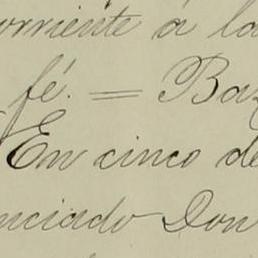 orriente á la
fé. = Baz
En cinco de
nciado Don